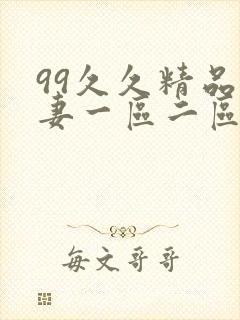 99久久精品
妻一區二區
每文哥哥